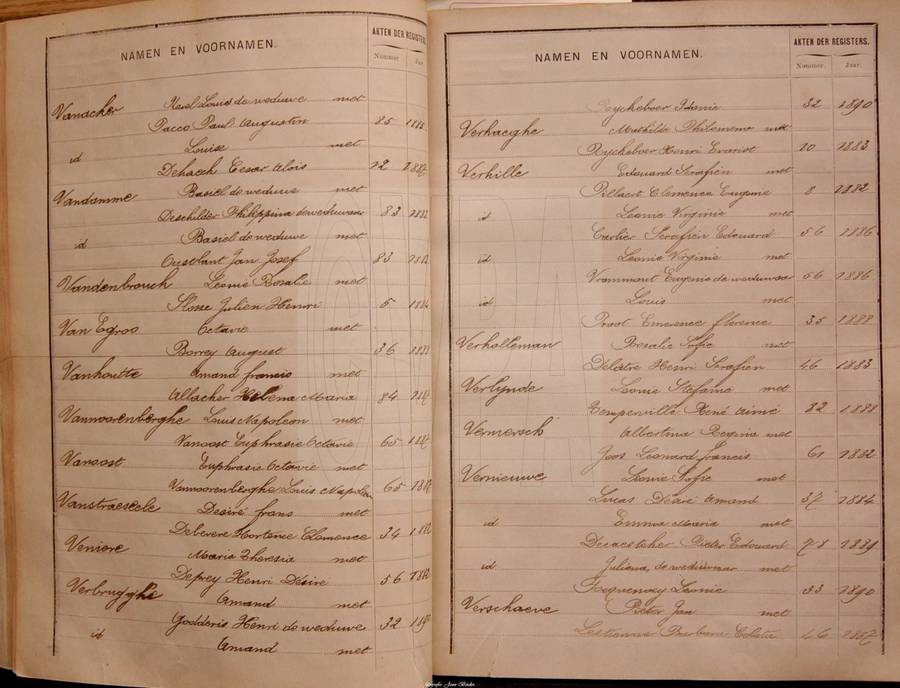 NAMEN EN VOORNAMEN.
AKTEN DER REGISTERS.
Nummer Jaar
Vanacker Karel Louis de weduwe met
Pacco Paul Augustin 85
id Louise met
Dehaeck Cesar Alois 22
Vandamme Basiel de weduwe met
Deschilder Philippina de weduwaar 83
id Basiel de weduwe met
Oustlant Jan Josef 83
Vandenbrouck Léonie Rosalie met
Slosse Julien Henri 5
Van Egroo Octavie met
Borrey August 36
Vanhoutte Amand francis met
Allacker Helena Maria 84
Vanmoorenberghe Louis Napoleon met
Vanoost Euphrasie Octavie 65
Vanoost Euphrasie Octavie met
Vanmoorenberghe Louis Napoleon 65
Vanstraeseele Desiré frans met
Debevere Hortense Clemence 34
Veniere Maria Theresia met
Deprey Henri Désiré 56
Verbrugghe Amand met
Godderis Henri de weduwe 32
id Amand met
NAMEN EN VOORNAMEN.
AKTEN DER REGISTERS.
Nummer. Jaar.
Ryckeboer 32 1890
Verhaeghe Mathilde Philomene met
Ryckeboer Henri Evarist 10 1883
Verhille Edouard Serafien met
Pillaert Clemence Eugenie 8 1882
id Leonie Virginie met
Carlier Serafien Edouard 56 1886
id Leonie Virginie met
Vrammout Eugenia de weduwaar 56 1886
id Louis met
Proot Emerence florence 35 1888
Verholleman Rosalie Sofie met
Delatre Henri Serafien 46 1883
Verlynde Leonie Stefanie met
Gemperville René Aimé 82 1888
Vermersch Albertina Regina met
Joos Leonard francis 61 1882
Vernieuwe Leonie Sofie met
Lucas Desiré Amand 37 1884
id Emma Maria met
Pieter Edouard 1889
id Juliena, de weduwaar met
Leonie 33 1890
Verschaeve Pieter Jan met
Barbara 46